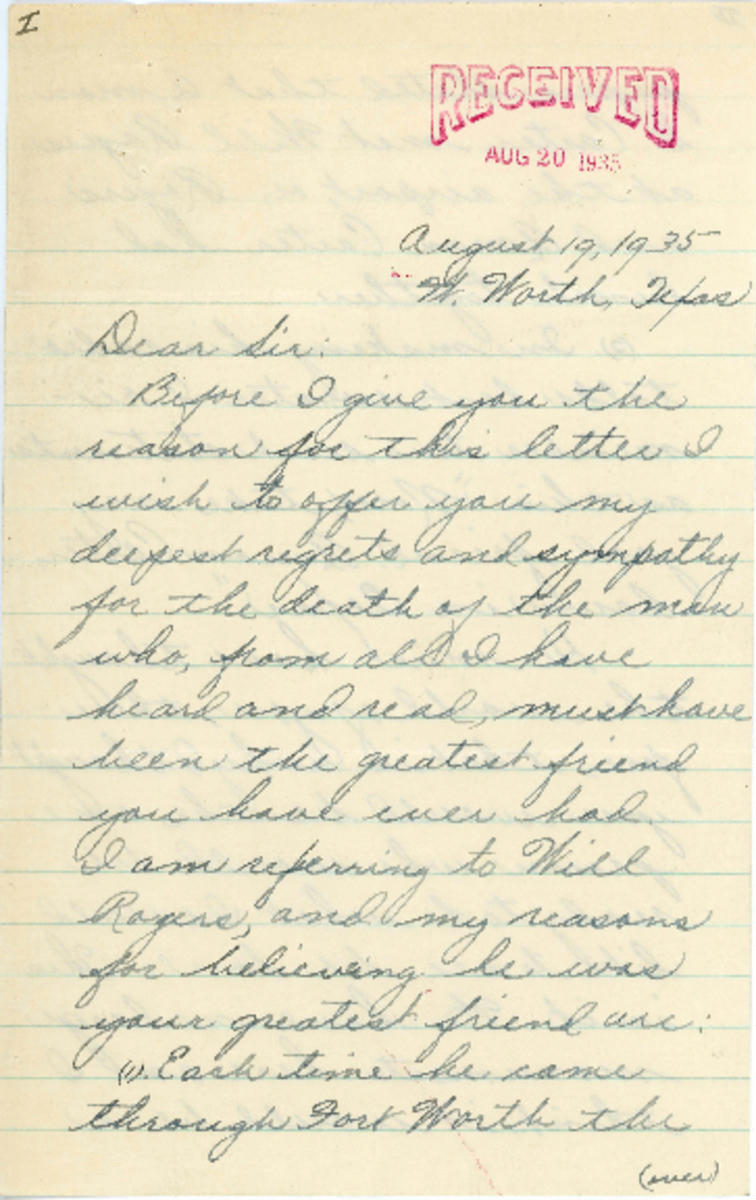 I
RECEIVED
AUG 20 1935
August 19, 1935
Ft. Worth, Texas
Dear Sir:
Before I give you the
reason for this letter I
wish to offer you my
deepest regrets and sympathy
for the death of the man
who, from all I have
heard and read, must have
been the greatest friend
you have ever had.
I am referring to Will
Rogers, and my reasons
for believing he was
your greatest friend are:
(1). Each time he came
through Fort Worth the
(over)